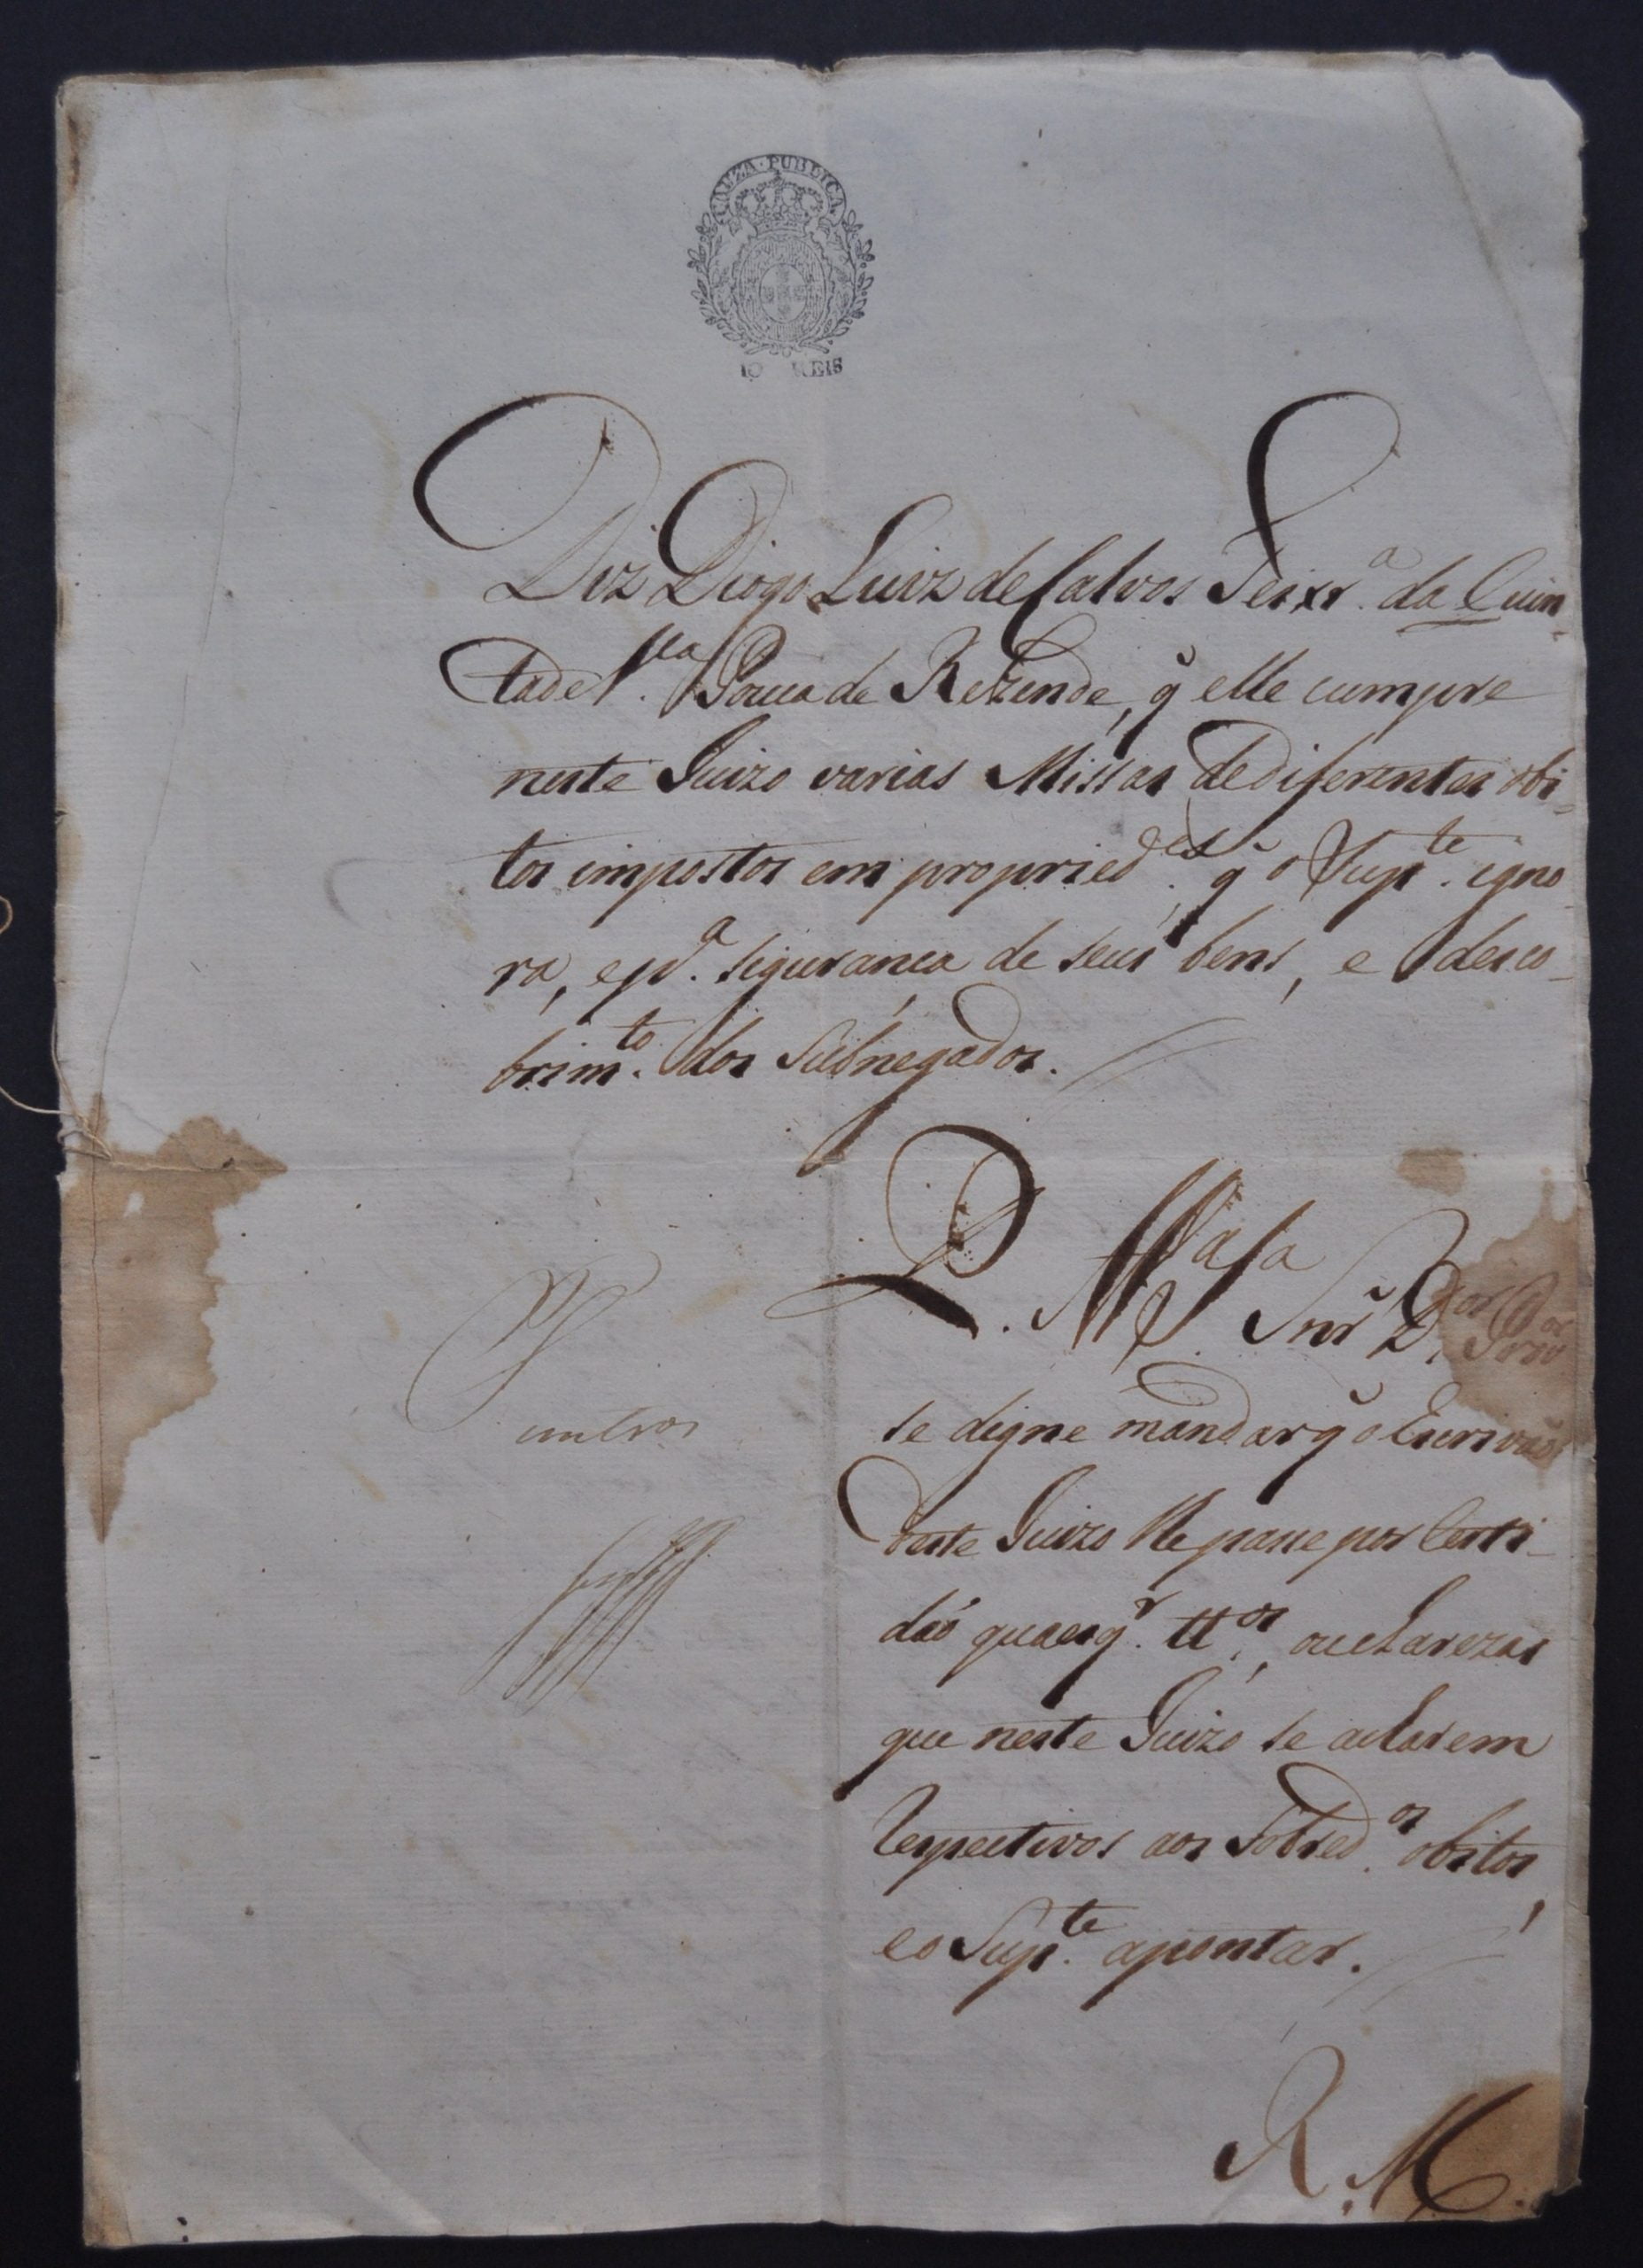 CAUZA PUBLICA
10 REIS
Diz Diogo Luiz de Calvos Teixr.ª da Quin-
ta de V.ª Pouca de Rezende, q̃ elle cumpre
neste Juizo varias Missas de diferentes obi-
tos impostos em propried.es, q̃ o Supte. igno-
ra, e pª. segurança de seus bens, e desco-
brimto. dos Subnegados.
P. a
Snr̃ D.or Prov.or
se digne mandar q̃ o Escrivaõ
deste Juizo lhe passe por Certi-
daõ quaesqr. tt.os, ou clarezas
que neste Juizo se acharem
respectivos aos sobred.os obitos,
e o Supte. apontar.
R. M.